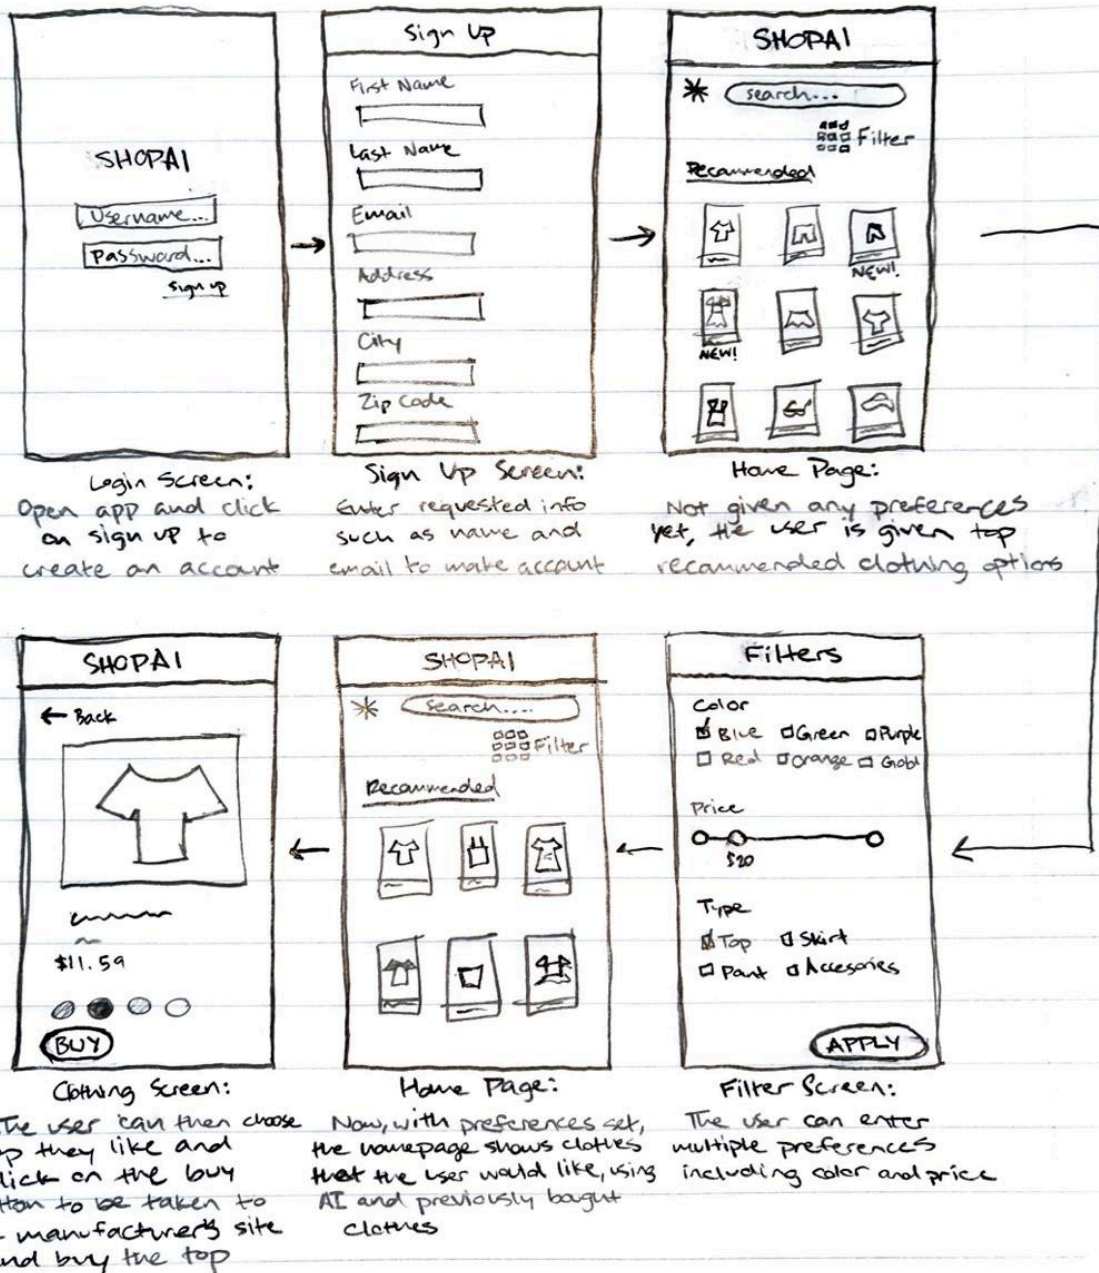 SHOPAI
Username...
Password...
sign up
Login Screen:
Open app and click
on sign up to
create an account
Sign Up
First Name
Last Name
Email
Address
City
Zip Code
Sign Up Screen:
Enter requested info
such as name and
email to make account
SHOPAI
search...
Filter
Recommended
NEW!
NEW!
Home Page:
Not given any preferences
yet, the user is given top
recommended clothing options
SHOPAI
← Back
$11.59
BUY
Clothing Screen:
The user can then choose
they like and
click on the buy
to be taken to
manufacturer's site
and buy the top
SHOPAI
search....
Filter
Recommended
Home Page:
Now, with preferences set,
the homepage shows clothes
that the user would like, using
AI and previously bought
clothes
Filters
Color
Blue Green Purple
Red Orange
Price
$20
Type
Top Skirt
Pant Accesories
APPLY
Filter Screen:
The user can enter
multiple preferences
including color and price